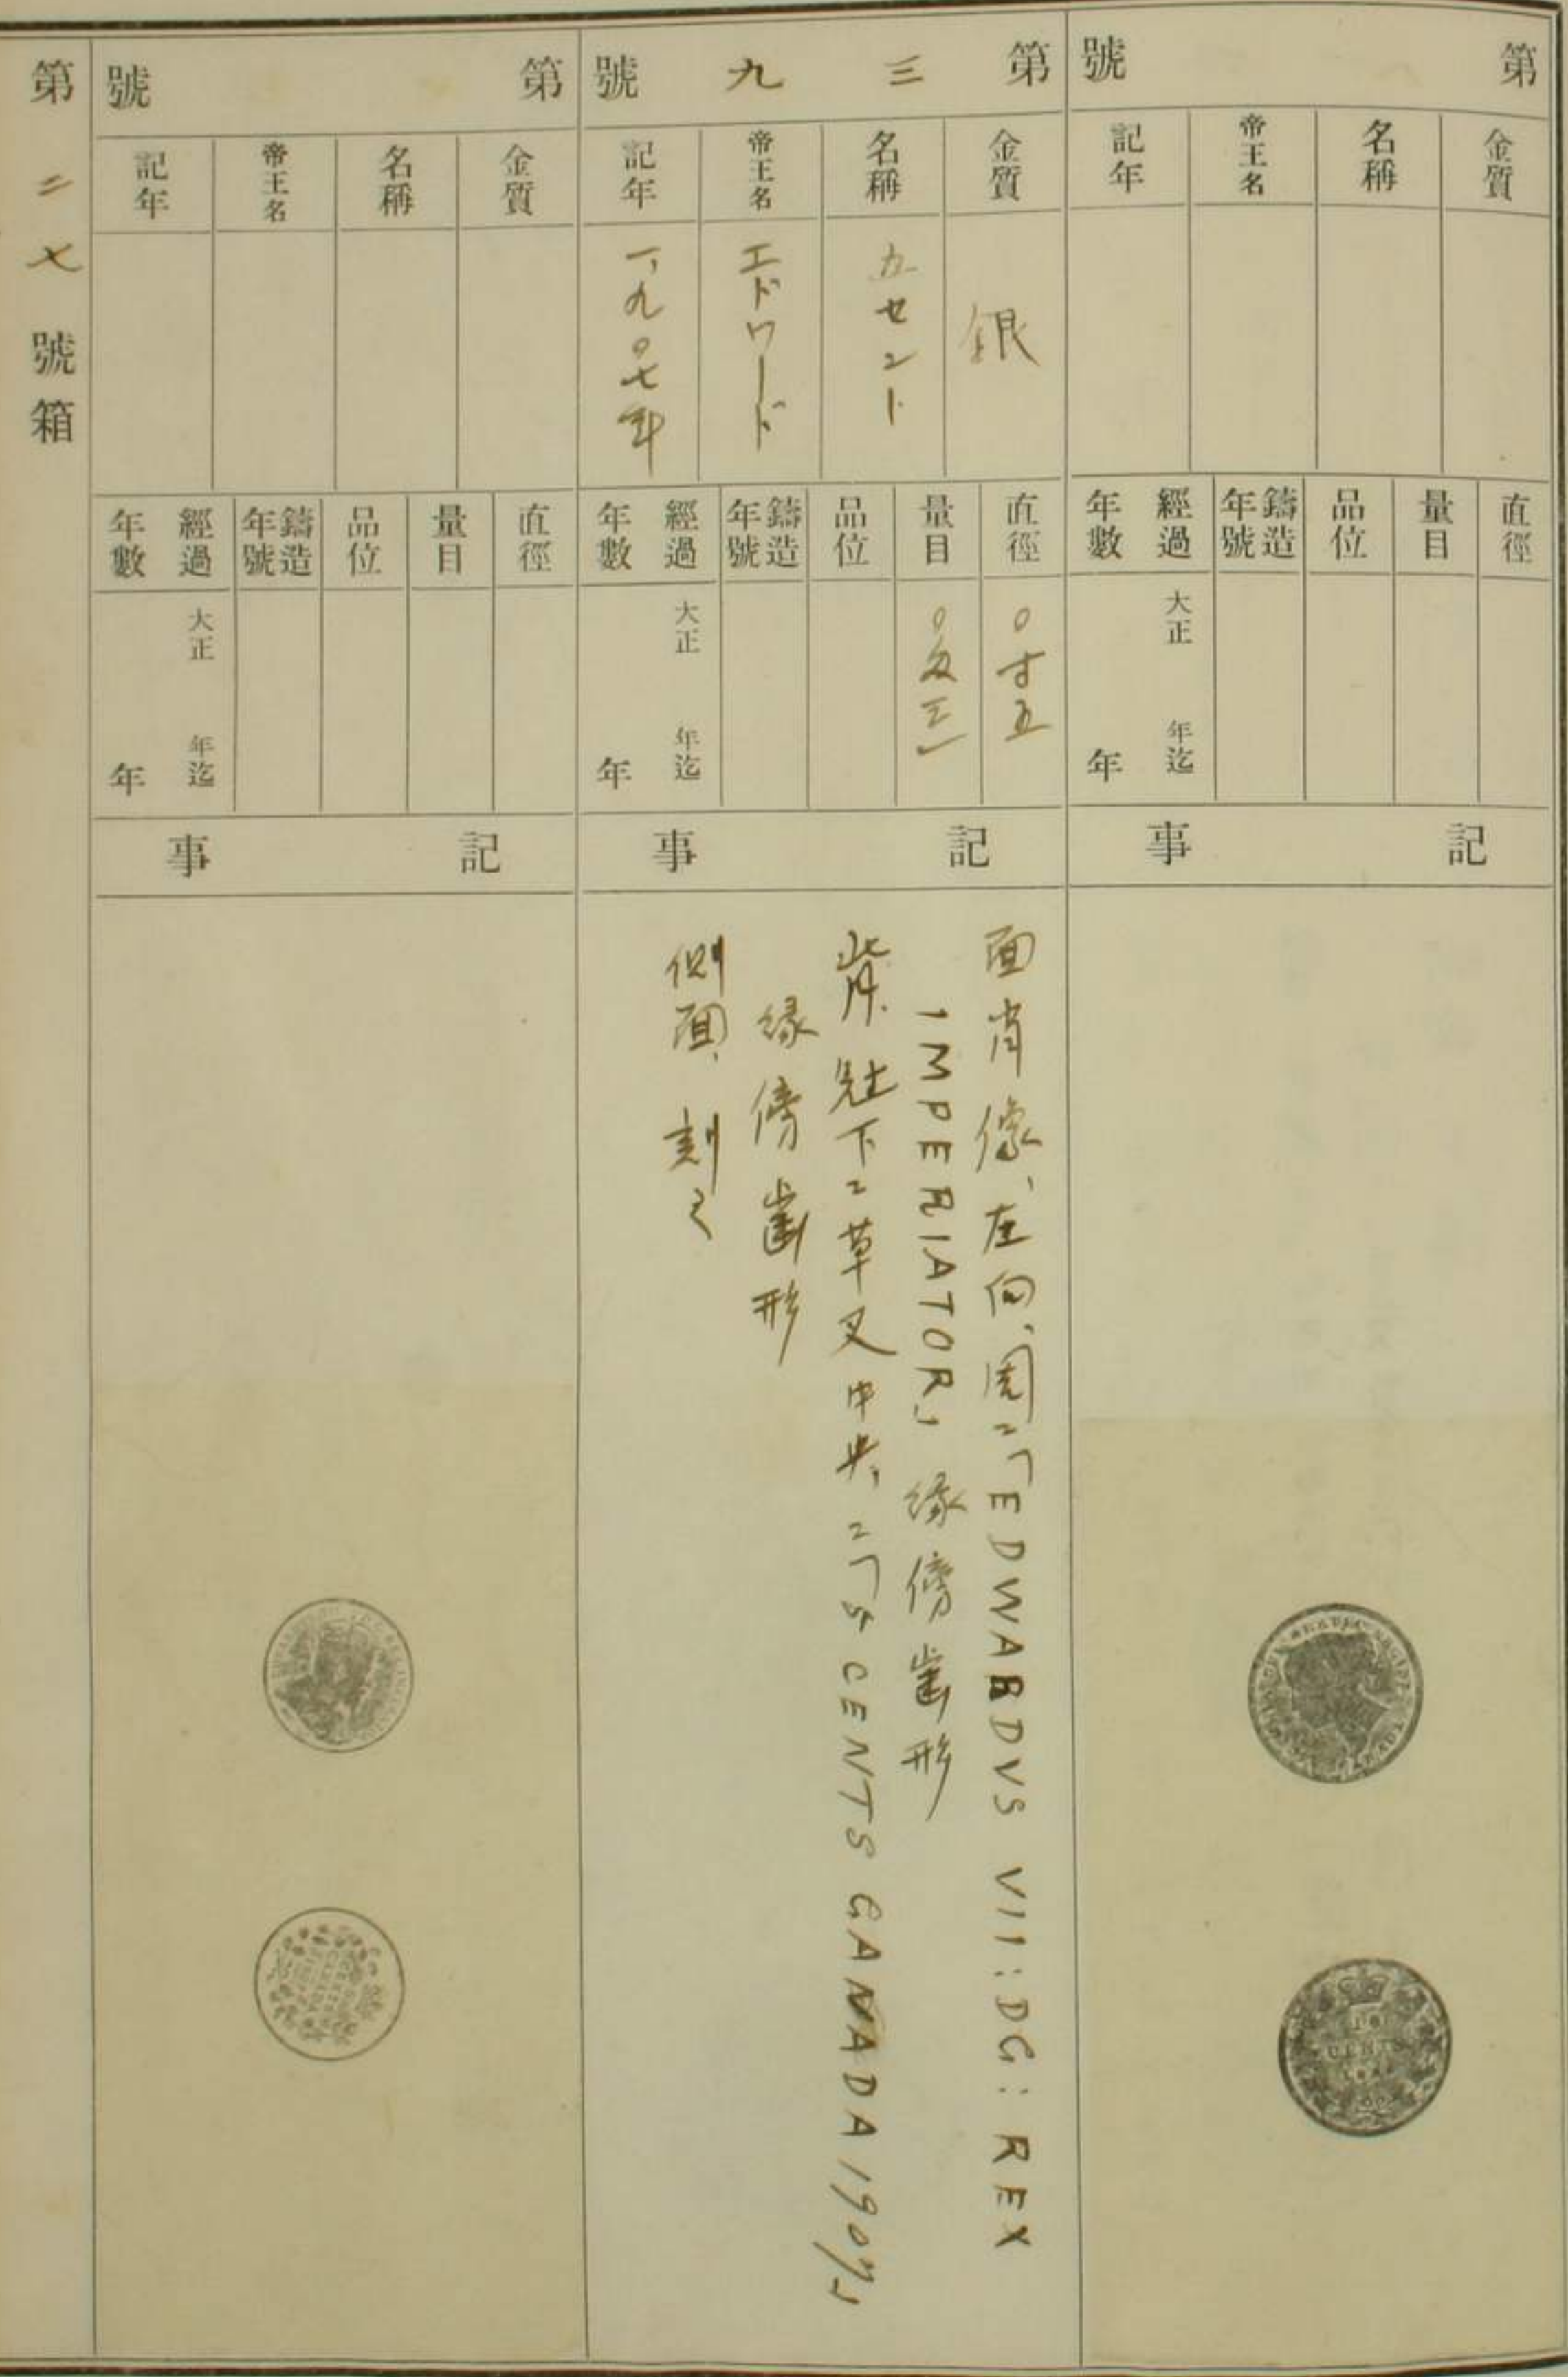 第 號
金質
名稱
帝王名
記年
直徑
量目
品位
鑄造年號
經過年數
大正 年迄
年
記 事
10
CENTS
第三九號
金質 銀
名稱 五セント
帝王名 エドワード
記年 一、九〇七年
直徑 〇寸五
量目 〇匁三一
品位
鑄造年號
經過年數
大正 年迄
年
記 事
面肖像、左向、周ニ「EDWARDVS VII:DG: REX
IMPERIATOR」 縁傍歯形
背、 下ニ草又中央、ニ「5 CENTS CANADA 1907」
縁傍歯形
側面、刻ミ
第 號
金質
名稱
帝王名
記年
直徑
量目
品位
鑄造年號
經過年數
大正 年迄
年
記 事
第二七號箱